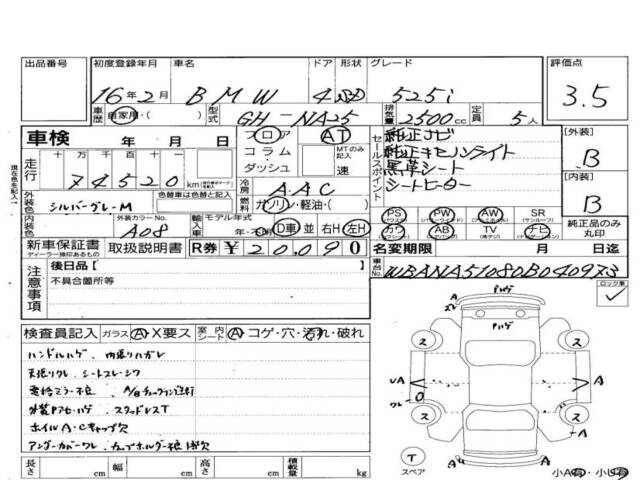 出品番号 初度登録年月 車名 ドア 形状 グレード 評価点
16年2月 BMW 4 525i 3.5
車歴 自家用・( ) 型式 GH-NA25 排気量 2500cc 定員 5人
車検 年 月 日 フロア AT セールスポイント 純正ナビ [外装]
走行 十万 万 千 百 十 一 コラム・ MTのみ記入 純正キセノンライト B
74520 km ダッシュ 速 黒革シート [内装]
現在色を記入→ 冷房 AAC シートヒーター B
外装色 シルバーグレーM 色替車は色替と記入 燃料 ガソリン・軽油・( )
PS PW AW SR
内装色 外装カラーNo. A08 輸入車 モデル年式 年・不明 D車 並 右H 左H カワ AB TV ナビ 純正品のみ丸印
新車保証書 取扱説明書 R券 ¥20,090 名変期限 月 日迄
ディーラー捺印あるもの
車台No. WBANA51080B040973
注意事項 後日品[ ] ロック車
不具合箇所等 ✓
検査員記入 ガラス A・X要ス 室内シート A・コゲ・穴・汚れ・破れ
ハンドルハゲ、内張りハガレ
天張リワレ、シートスレ・シワ
電格ミラー不良
外装Pアセ・ハゲ、スタッドレスT
ホイルA・Cキャップ欠
アンダーカバーワレ、カップホルダー不良
長さ cm 幅 cm 高さ cm 積載量 kg
A
Pハゲ
ス ス
UA A A
ワレ
ス ス
A
T
スペア
A A
小A有・小U有